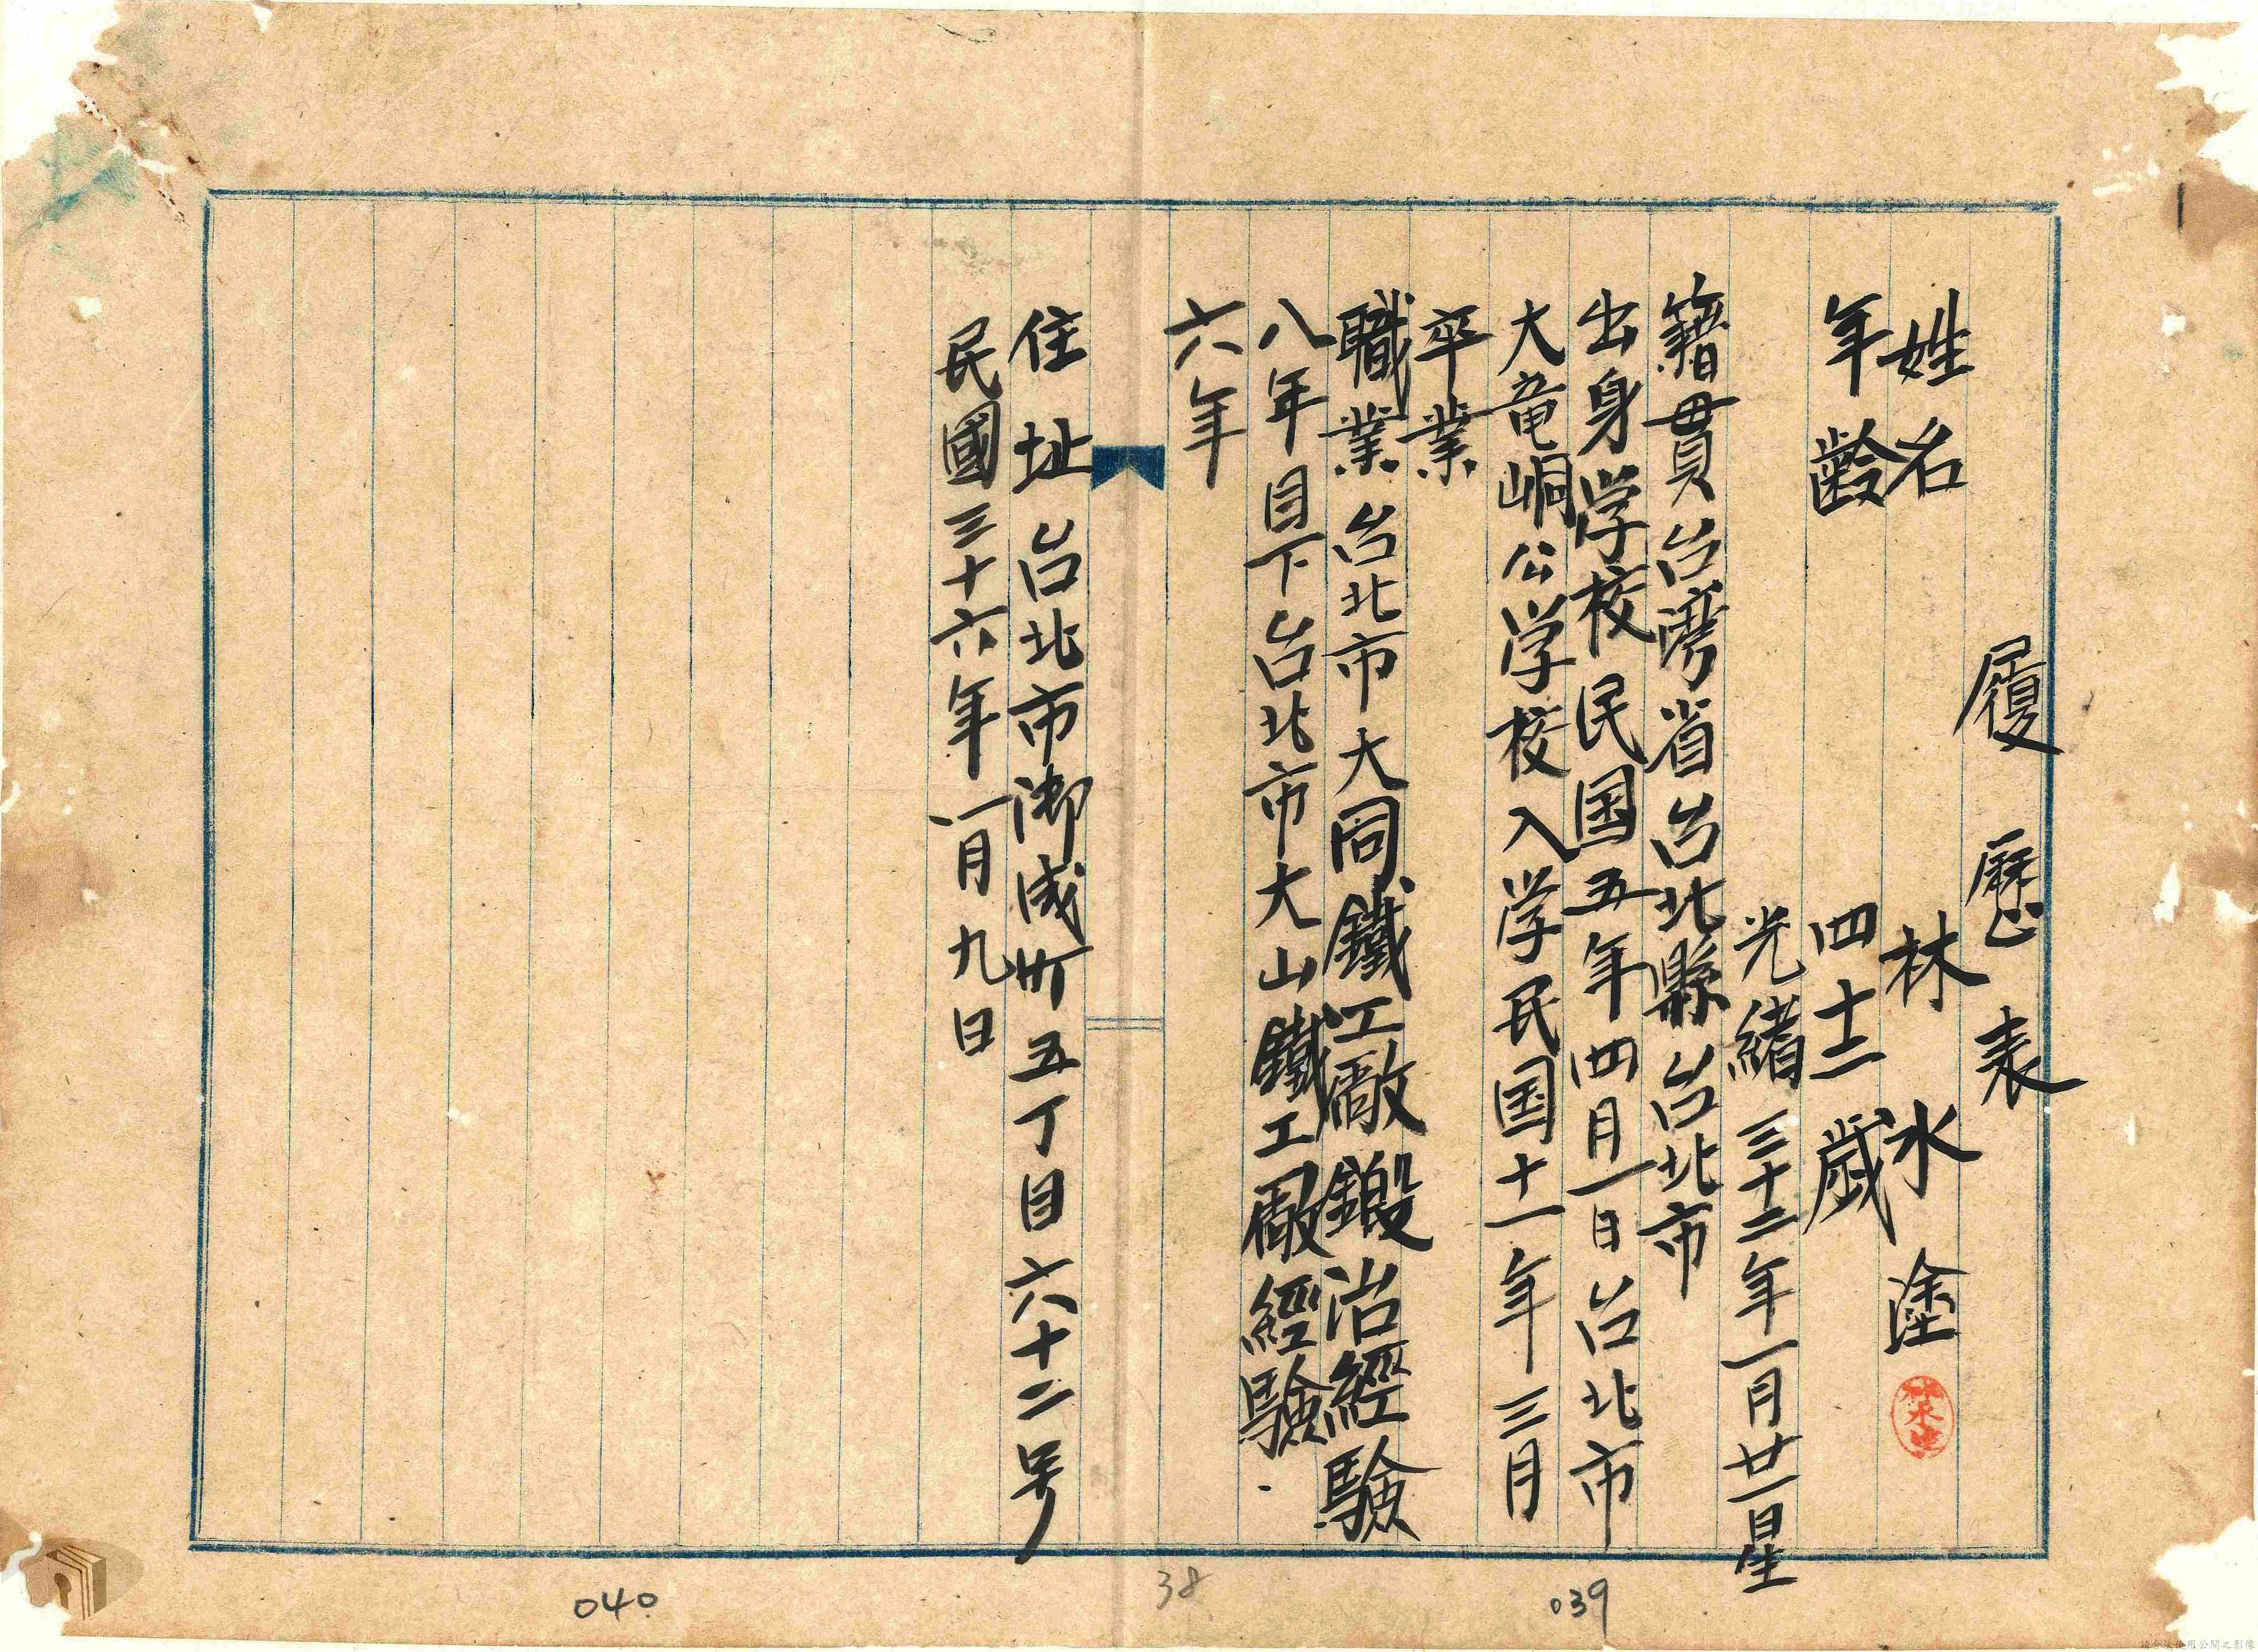 履歷表
姓名 林水塗
年齡 四十二歲
光緒三十二年一月廿一日生
籍貫台湾省台北縣台北市
出身学校民国五年四月一日台北市
大竜峒公学校入学民国十一年三月
卒業
職業台北市大同鐵工廠鍛冶經驗
八年目下台北市大山鐵工廠經驗
六年
住址台北市御成町五丁目六十二号
民國三十六年一月九日
039
38
040